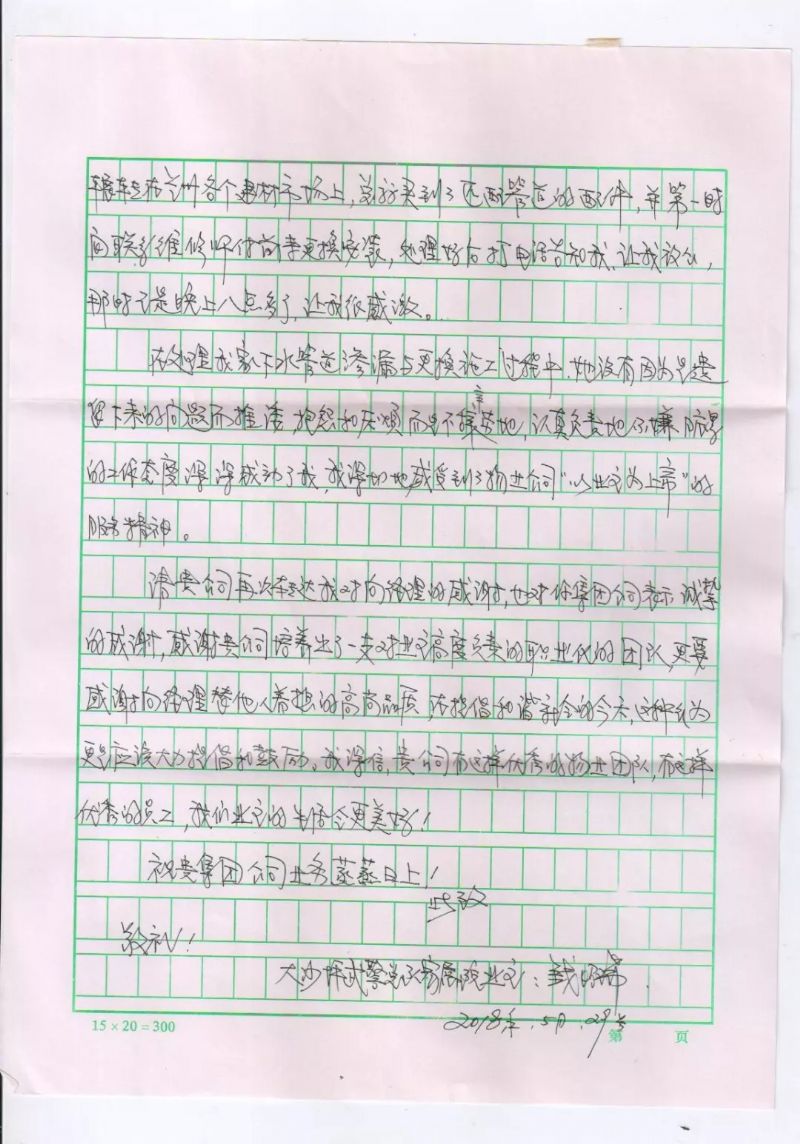 辗转在兰州各个建材市场上，总算买到了匹配管道的配件，并第一时
间联系维修师付前来更换安装，处理好后打电话告知我，让我放心，
那时已是晚上八点多了，让我很感激。
在处理我家下水管道渗漏与更换施工过程中，她没有因为是遗
留下来的问题而推诿、抱怨和厌烦，而是不辞辛劳地，认真负责地
的工作态度深深感动了我，我深切地感受到了物业公司“以业主为上帝”的
服务精神。
请贵公司再次转达我对向经理的感谢，也对你集团公司表示诚挚
的感谢，感谢贵公司培养出了一支对业主高度负责的职业化的团队，更要
感谢向经理替他人着想的高尚品质，在提倡和谐社会的今天，这种行为
更是应该大力提倡和鼓励。我深信，贵公司有这样优秀的物业团队，有这样
优秀的员工，我们业主的生活会更美好！
祝贵集团公司业务蒸蒸日上！
此致
敬礼！
大沙坪武警总队家属院业主：钱
2018年.5月.29号
15×20=300
第 页